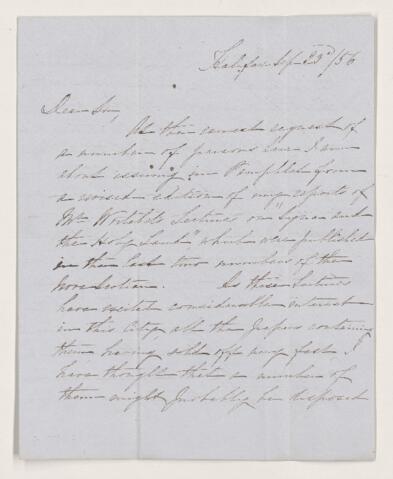 Halifax Sep 23d/56
Dear Sir,
At the earnest request of
a number of persons here I am
about issuing in Pamphlet form
a revised edition of my reports of
Mr Lectures on "Syria and
the Holy Land" which were published
in the last two numbers of the
Nova Scotian. As these Lectures
have excited considerable interest
in this City, all the papers containing
them having sold off very fast I
have thought that a number of
them might probably be disposed